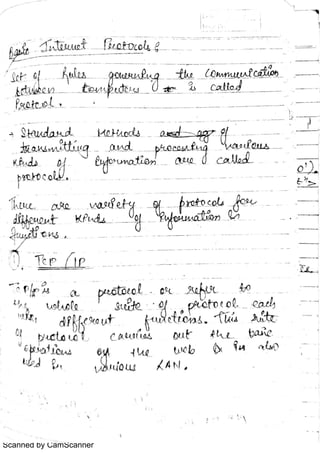 Basic Internet Protocols :
Set of Rules governing the Communication
between Computers is called
Protocol.
→ Standard Methods and of
transmitting and processing various
kinds of Information are called
protocols.
There are variety of protocols for
different kinds of Information &
functions.
①. TCP /IP
is a protocol or refer to
the whole suite of protocol each
different functions. This suite
of protocol carries out the basic
operations of the web & is also
used in various LAN.
Scanned by CamScanner